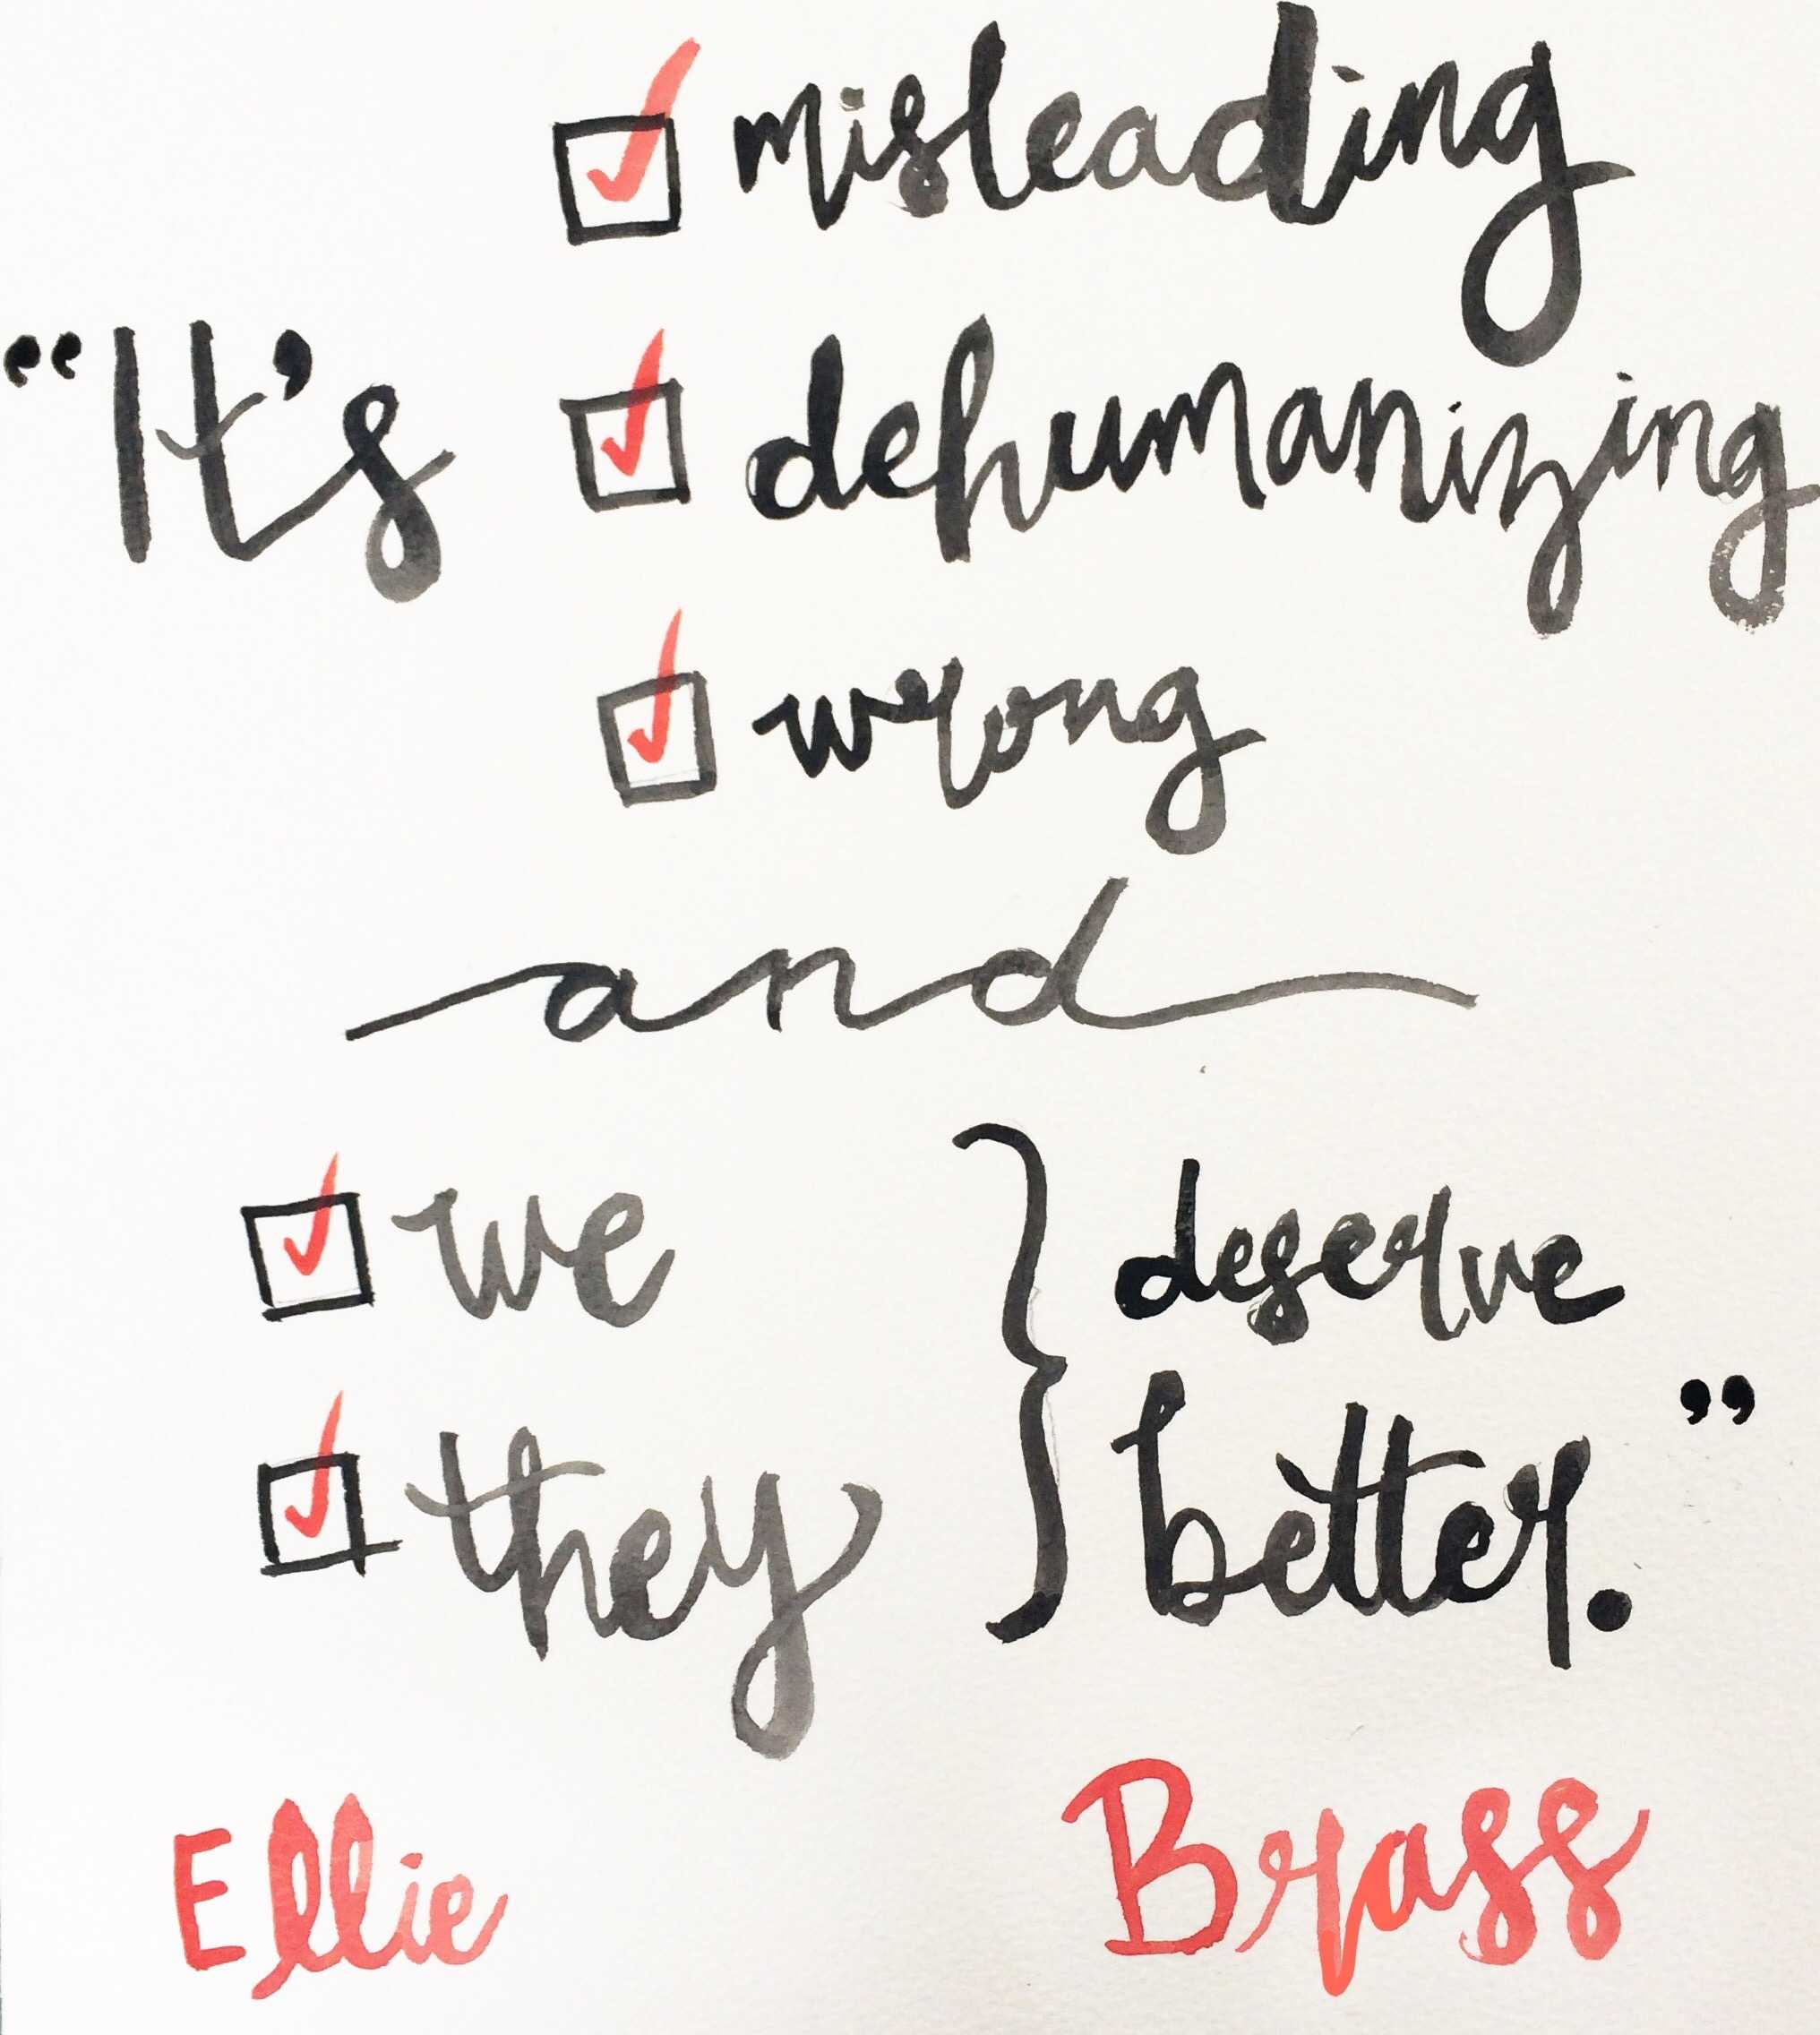 misleading
“It's dehumanizing
wrong
and
we
they
} deserve
better.”
Ellie Brass